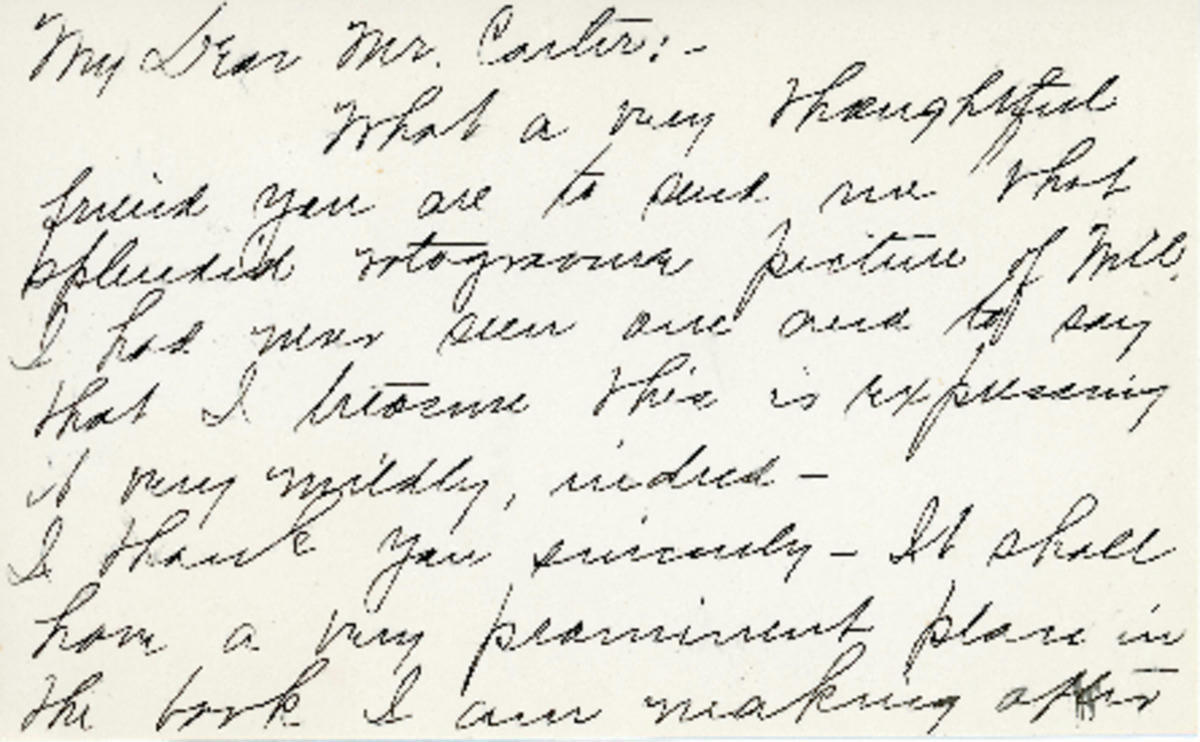 My Dear Mr. Carter:-
What a very thoughtful
friend you are to send me that
splendid rotogravure picture of Mil.
I had never seen one and to say
that I treasure this is expressing
it very mildly, indeed -
I thank you sincerely - It shall
have a very prominent place in
the book I am making of